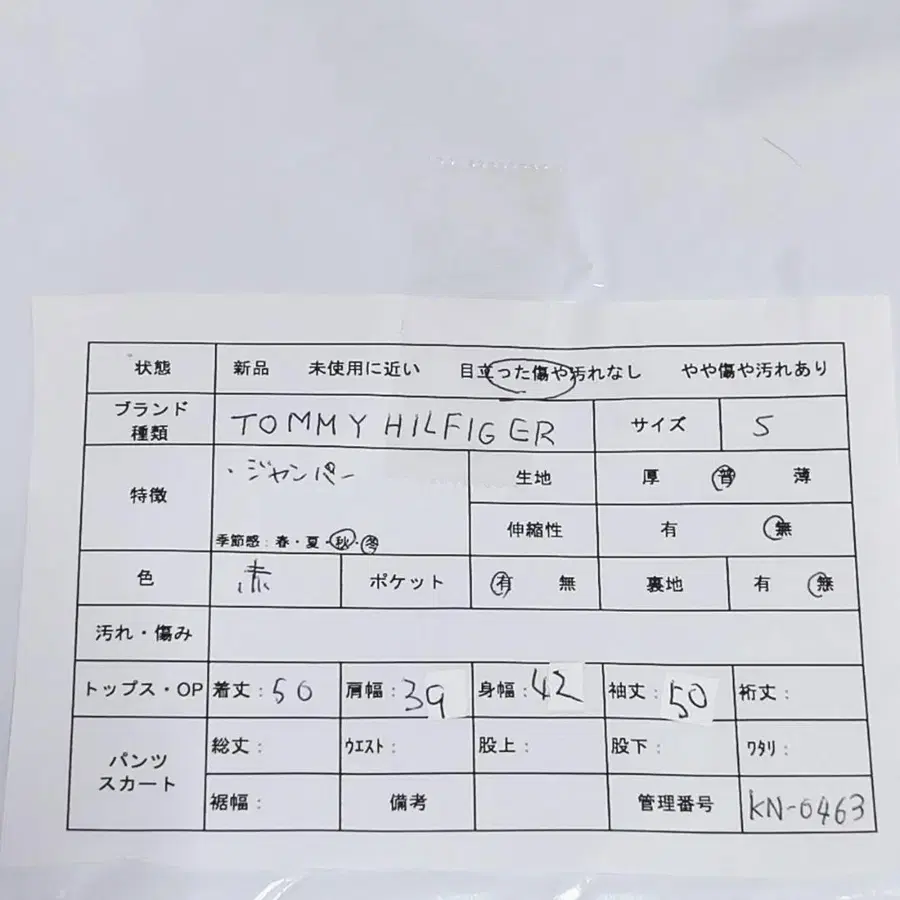 状態 新品 未使用に近い 目立った傷や汚れなし やや傷や汚れあり
ブランド種類 TOMMY HILFIGER サイズ S
特徴 ・ジャンパー 生地 厚 普 薄
季節感：春・夏・秋・冬 伸縮性 有 無
色 赤 ポケット 有 無 裏地 有 無
汚れ・傷み
トップス・OP 着丈：50 肩幅：39 身幅：42 袖丈：50 裄丈：
パンツ スカート 総丈： ウエスト： 股上： 股下： ワタリ：
裾幅： 備考 管理番号 KN-0463